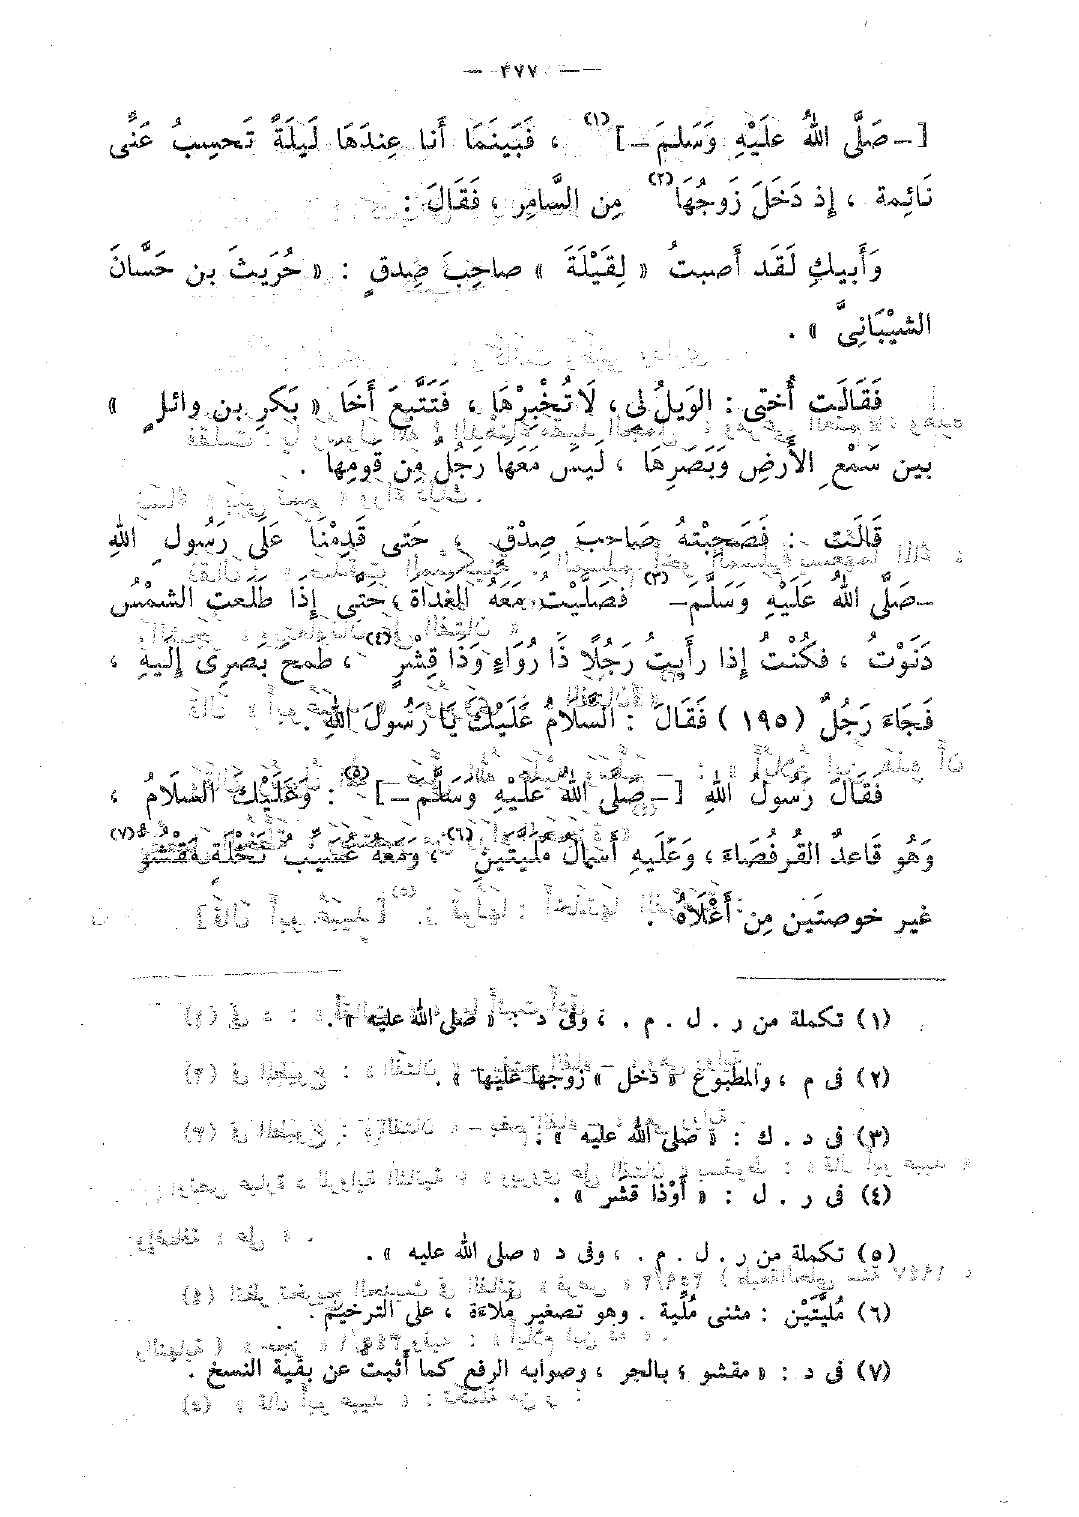 — ٤٧٧ —
[ – صَلَّى اللهُ عَلَيْهِ وَسَلمَ – ] (١) ، فَبَينَمَا أَنا عِندَهَا لَيلَةً تَحسِبُ عَنِّى
نَائِمة ، إِذ دَخَلَ زَوجُهَا (٢) مِن السَّامِرِ ، فَقَالَ :
وَأَبيكِ لَقَد أَصبتُ « لِقَيْلَةَ » صاحِبَ صِدقٍ : « حُرَيثَ بن حَسَّانَ
الشيْبَانِىَّ » .
فَقَالَت أُختى : الوَيلُ لِى ، لَا تُخْبِرْهَا ، فَتَتَّبِعَ أَخَا « بَكرِ بن وائلٍ »
بين سَمْعِ الأَرضِ وَبَصَرِهَا ، لَيسَ مَعَها رَجُلٌ مِن قَومِهَا .
قَالَت : فَصَحِبْتهُ صَاحِبَ صِدْقٍ ، حَتى قَدِمْنَا عَلَى رَسُولِ اللهِ
– صَلَّى اللهُ عَلَيْهِ وَسَلَّمَ – (٣) فَصَلَّيْتُ مَعَهُ الْغداةَ ، حَتَّى إِذَا طَلَعتِ الشمْسُ
دَنَوْتُ ، فكُنْتُ إذا رأَيتُ رَجُلًا ذَا رُوَاءٍ وَذَا قِشْرٍ (٤) ، طمحَ بَصَرِى إليهِ ،
فَجَاءَ رَجُلٌ ( ١٩٥ ) فَقَالَ : السَّلَامُ عَلَيْكَ يَا رَسُولَ اللهِ .
فَقَالَ رَسُولُ اللهِ [ – صَلَّى اللهُ عَلَيْهِ وَسَلَّمَ – ] (٥) : وَعَلَيْكَ السَّلَامُ ،
وَهُو قَاعِدٌ القُرفُصَاءَ ، وَعَلَيهِ أَسْمَالُ مُليَّتَينِ (٦) ، وَمَعَهُ عُسَيِّبُ نَخْلَةٍ مَقْشُوٌّ (٧)
غير خوصتَين مِن أَعْلَاهُ .
(١) تكملة من ر . ل . م . ، وفى د : « صلى الله عليه » .
(٢) فى م ، والمطبوع « دخل » زوجها عليها » .
(٣) فى د . ك : « صلى الله عليه » .
(٤) فى ر . ل : « أَوْذا قشر » .
(٥) تكملة من ر . ل . م . ، وفى د « صلى الله عليه » .
(٦) مُليَّتَيْن : مثنى مُليَّة . وهو تصغير مُلاءة ، على الترخيم .
(٧) فى د : « مقشو » بالجر ، وصوابه الرفع كما أثبت عن بقية النسخ .